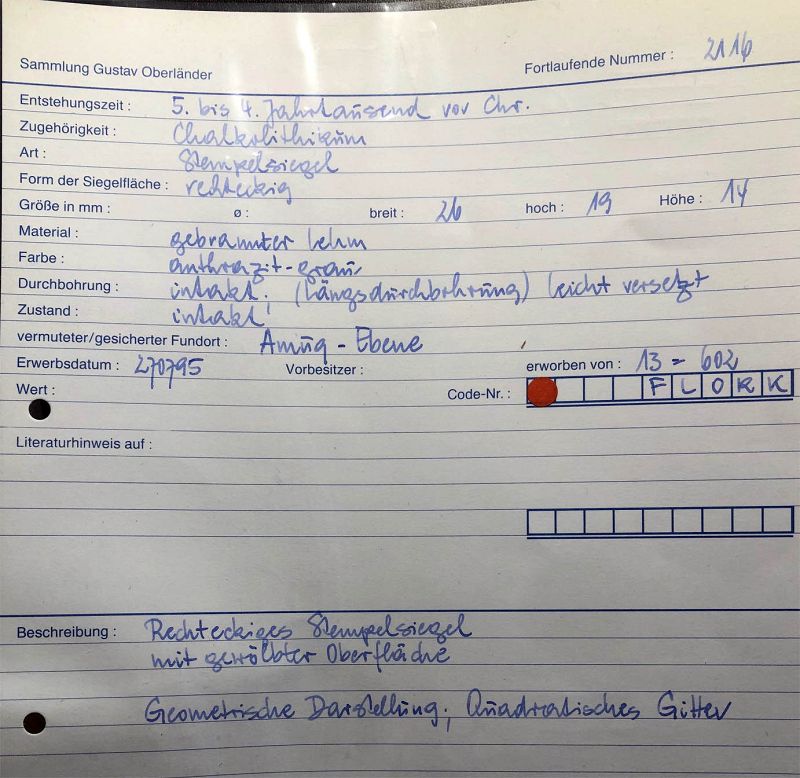 Sammlung Gustav Oberländer Fortlaufende Nummer : 2116
Entstehungszeit : 5. bis 4. Jahrtausend vor Chr.
Zugehörigkeit : Chalkolithikum
Art : Stempelsiegel
Form der Siegelfläche : rechteckig
Größe in mm : ø : breit : 26 hoch : 19 Höhe : 14
Material : gebrannter Lehm
Farbe : anthrazit-grau
Durchbohrung : intakt! (Längsdurchbohrung) leicht versetzt
Zustand : intakt!
vermuteter/gesicherter Fundort : Amuq - Ebene
Erwerbsdatum : 270795 Vorbesitzer : erworben von : 13 = 602
Wert : Code-Nr. : FLORK
Literaturhinweis auf :
Beschreibung : Rechteckiges Stempelsiegel
mit gewölbter Oberfläche
Geometrische Darstellung; Quadratisches Gitter